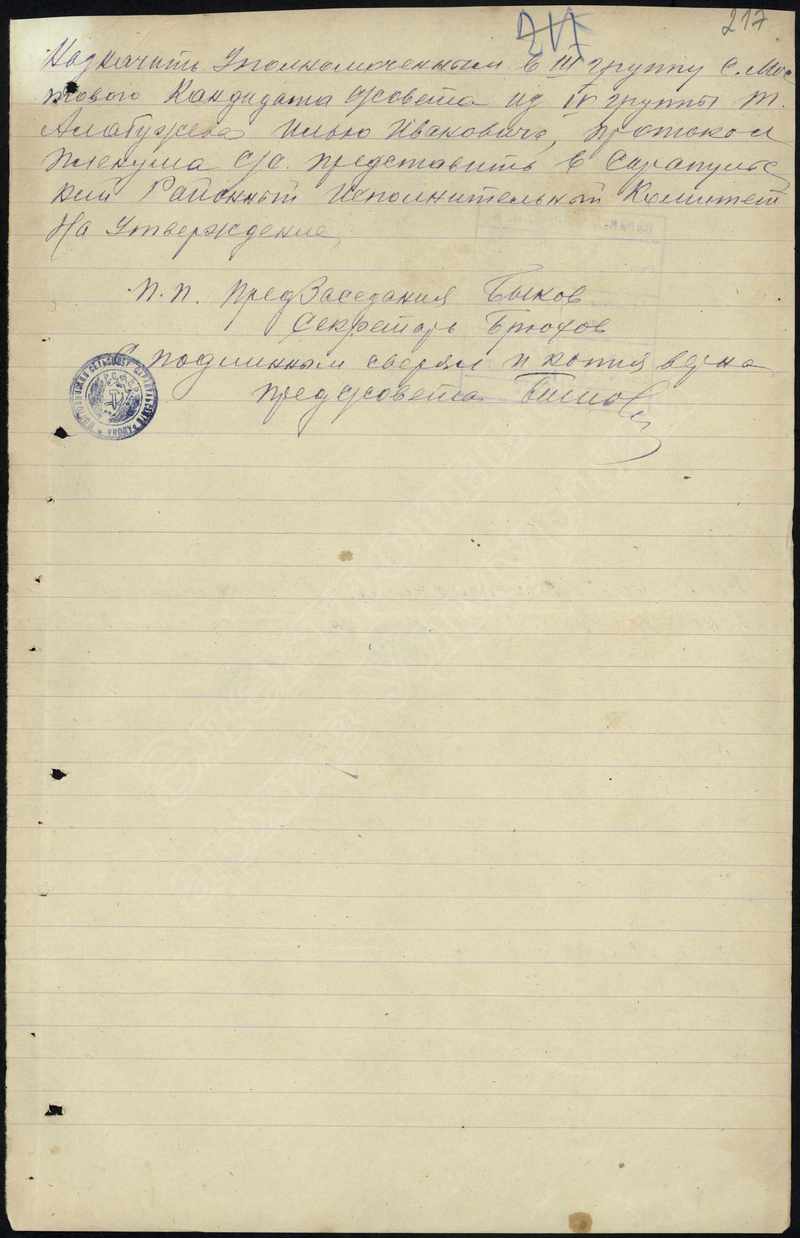 217
217
Назначить Уполномоченным в III группу с. Мос
тового Кандидата с/совета из IV группы т.
Алабужева Илью Ивановича, протокол
Пленума с/с. представить в Сарапульс
кий Районный Исполнительный Комитет
На Утверждение
п.п. ПредЗаседания Быков
Секретарь Брюхов
С подлинным сверял и копия верна
предс/совета